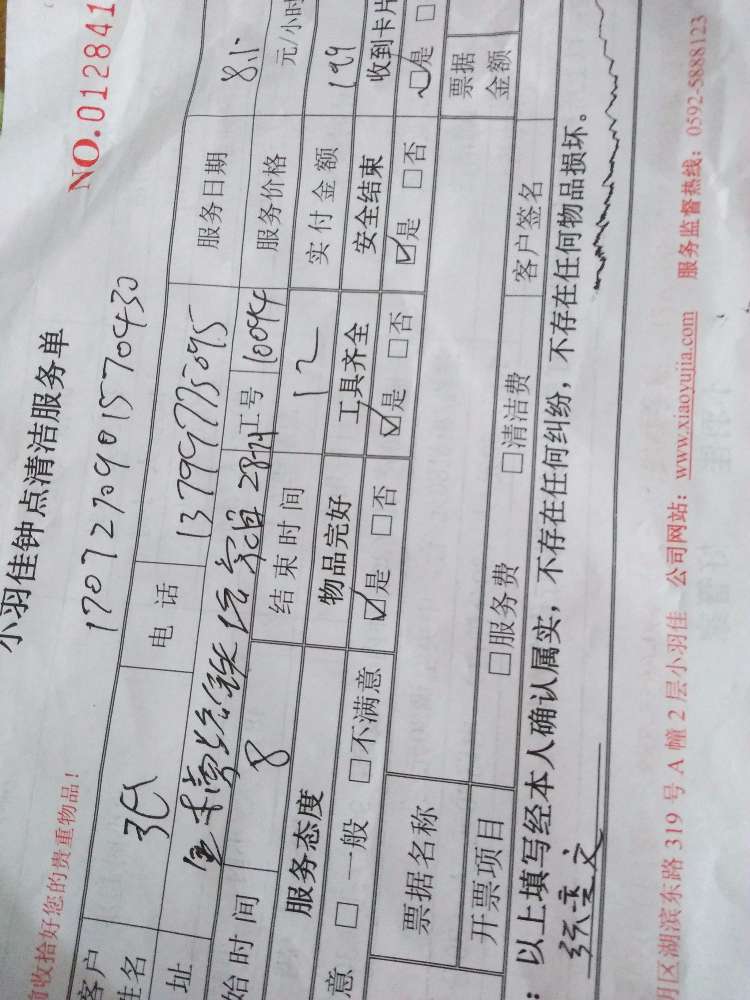 小羽佳钟点清洁服务单
NO.012841
收拾好您的贵重物品！
170727090157043​0
客户姓名 电话 13799775095 服务日期 8.1
址 工号 10094 服务价格 元/小时
始时间 8 结束时间 12 实付金额 199
服务态度 物品完好 工具齐全 安全结束 收到卡片
意 □一般 □不满意 ☑是 □否 ☑是 □否 ☑是 □否 ☑是 □
票据名称 票据金额
开票项目 □服务费 □清洁费 客户签名
：以上填写经本人确认属实，不存在任何纠纷，不存在任何物品损坏。
区湖滨东路 319 号 A 幢 2 层小羽佳 公司网站：www.xiaoyujia.com 服务监督热线：0592-5888123